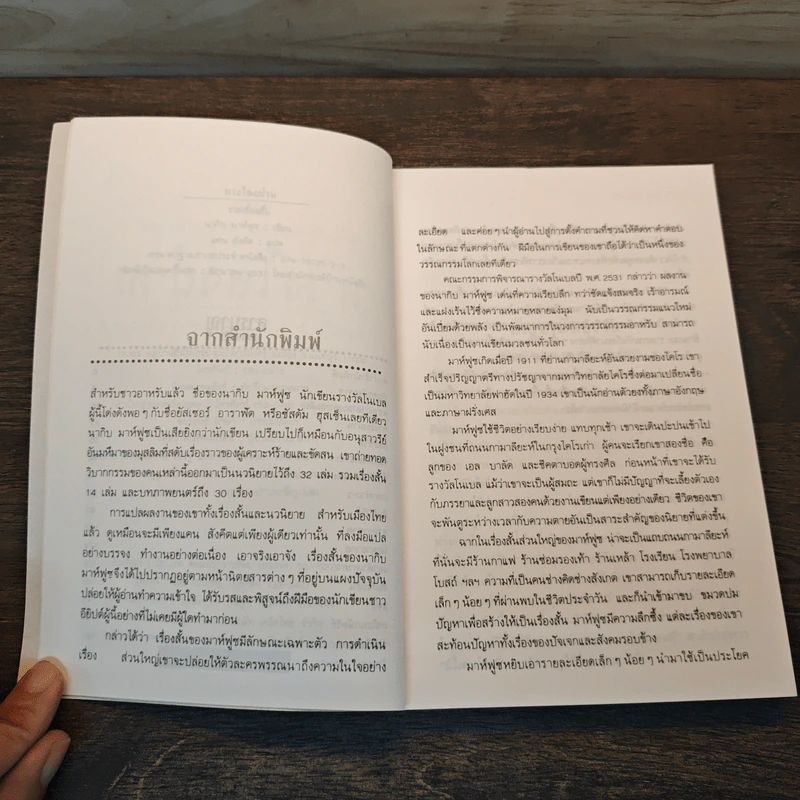 จากสำนักพิมพ์
สำหรับชาวอาหรับแล้ว ชื่อของนากิบ มาห์ฟูซ นักเขียนรางวัลโนเบล
ผู้นี้โด่งดังพอๆ กับชื่อยัสเซอร์ อาราฟัด หรือซัสดัม ฮุสเซ็นเลยทีเดียว
นากิบ มาห์ฟูซเป็นเสียยิ่งกว่านักเขียน เปรียบไปก็เหมือนกับอนุสาวรีย์
อันมหึมาของมุสลิมที่สดับเรื่องราวของผู้เคราะห์ร้ายและขัดสน เขาถ่ายทอด
วิบากกรรมของคนเหล่านี้ออกมาเป็นนวนิยายไว้ถึง 32 เล่ม รวมเรื่องสั้น
14 เล่ม และบทภาพยนตร์ถึง 30 เรื่อง
การแปลผลงานของเขาทั้งเรื่องสั้นและนวนิยาย สำหรับเมืองไทย
แล้ว ดูเหมือนจะมีเพียงแคน สังคีตแต่เพียงผู้เดียวเท่านั้น ที่ลงมือแปล
อย่างบรรจง ทำงานอย่างต่อเนื่อง เอาจริงเอาจัง เรื่องสั้นของนากิบ
มาห์ฟูซจึงได้ไปปรากฏอยู่ตามหน้านิตยสารต่างๆ ที่อยู่บนแผงปัจจุบัน
ปล่อยให้ผู้อ่านทำความเข้าใจ ได้รับรสและพิสูจน์ถึงฝีมือของนักเขียนชาว
อียิปต์ผู้นี้อย่างที่ไม่เคยมีผู้ใดทำมาก่อน
กล่าวได้ว่า เรื่องสั้นของมาห์ฟูซมีลักษณะเฉพาะตัว การดำเนิน
เรื่อง ส่วนใหญ่เขาจะปล่อยให้ตัวละครพรรณนาถึงความในใจอย่าง
ละเอียด และค่อยๆ นำผู้อ่านไปสู่การตั้งคำถามที่ชวนให้คิดหาคำตอบ
ในลักษณะที่แตกต่างกัน ฝีมือในการเขียนของเขาถือได้ว่าเป็นหนึ่งของ
วรรณกรรมโลกเลยทีเดียว
คณะกรรมการพิจารณารางวัลโนเบลปี พ.ศ. 2531 กล่าวว่า ผลงาน
ของนากิบ มาห์ฟูซ เด่นที่ความเรียบลึก ทว่าชัดแจ้งสมจริง เร้าอารมณ์
และแฝงเร้นไว้ซึ่งความหมายหลายแง่มุม นับเป็นวรรณกรรมแนวใหม่
อันเปี่ยมด้วยพลัง เป็นพัฒนาการในวงการวรรณกรรมอาหรับ สามารถ
นับเนื่องเป็นงานเขียนมวลชนทั่วโลก
มาห์ฟูซเกิดเมื่อปี 1911 ที่ย่านกามาลียะห์อันสวยงามของไคโร เขา
สำเร็จปริญญาตรีทางปรัชญาจากมหาวิทยาลัยไคโรซึ่งต่อมาเปลี่ยนชื่อ
เป็นมหาวิทยาลัยฟาฮัดในปี 1934 เขาเป็นนักอ่านตัวยงทั้งภาษาอังกฤษ
และภาษาฝรั่งเศส
มาห์ฟูซใช้ชีวิตอย่างเรียบง่าย แทบทุกเช้า เขาจะเดินปะปนเข้าไป
ในฝูงชนที่ถนนกามาลียะห์ในกรุงไคโรเก่า ผู้คนจะเรียกเขาสองชื่อ คือ
ลูกของ เอล บาลัด และชีคตาบอดผู้ทรงศีล ก่อนหน้าที่เขาจะได้รับ
รางวัลโนเบล แม้ว่าเขาจะเป็นผู้สมถะ แต่เขาก็ไม่มีปัญญาที่จะเลี้ยงตัวเอง
กับภรรยาและลูกสาวสองคนด้วยงานเขียนแต่เพียงอย่างเดียว ชีวิตของเขา
จะพันตูระหว่างเวลากับความตายอันเป็นสาระสำคัญของนิยายที่แต่งขึ้น
ฉากในเรื่องสั้นส่วนใหญ่ของมาห์ฟูซ น่าจะเป็นแถบถนนกามาลียะห์
ที่นั่นจะมีร้านกาแฟ ร้านซ่อมรองเท้า ร้านเหล้า โรงเรียน โรงพยาบาล
โบสถ์ ฯลฯ ความที่เป็นคนช่างคิดช่างสังเกต เขาสามารถเก็บรายละเอียด
เล็กๆ น้อยๆ ที่ผ่านพบในชีวิตประจำวัน และก็นำเข้ามาขบ ขมวดปม
ปัญหาเพื่อสร้างให้เป็นเรื่องสั้น มาห์ฟูซมีความลึกซึ้ง แต่ละเรื่องของเขา
สะท้อนปัญหาทั้งเรื่องของปัจเจกและสังคมรอบข้าง
มาห์ฟูซหยิบเอารายละเอียดเล็กๆ น้อยๆ นำมาใช้เป็นประโยค